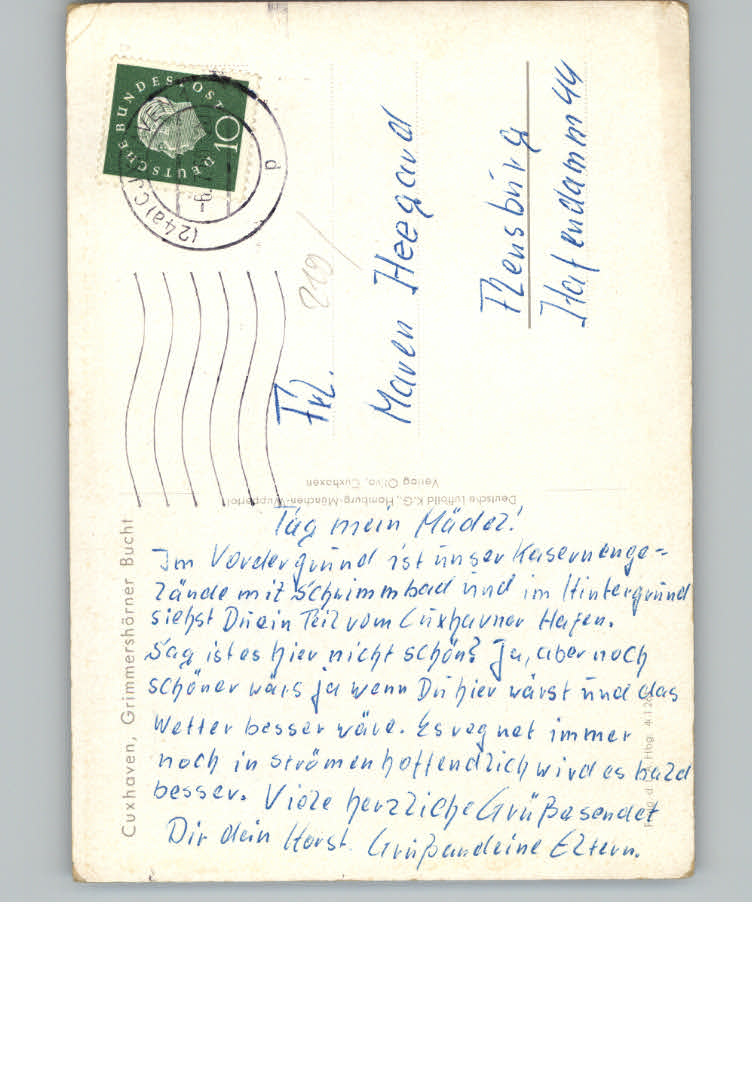 Tag mein Mädel!
Im Vordergrund ist unser Kasernenge=
lände mit Schwimmbad und im Hintergrund
siehst Du ein Teil vom Cuxhavner Hafen.
Sag ist es hier nicht schön? Ja, aber noch
schöner wärs ja wenn Du hier wärst und das
Wetter besser wäre. Es regnet immer
noch in strömen hoffendlich wird es bald
besser. Viele herzliche Grüße sendet
Dir dein Horst. Gruß an deine Eltern.
Frl.
Maren Heegard
Flensburg
Hafendamm 44
219/
Cuxhaven, Grimmershörner Bucht
Deutsche Luftbild K.G., Hamburg-München-Wuppertal
Verlag Oliva, Cuxhaven
DEUTSCHE BUNDESPOST
10
DEUTSCHE
(24a) C
-6.
d